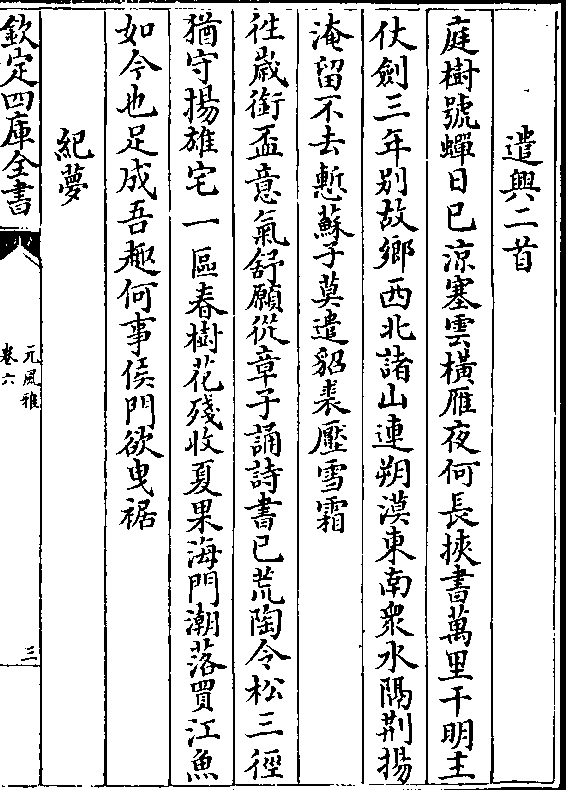 遣興二首
庭樹號蟬日已涼塞雲橫雁夜何長挾書萬里干明主
仗劍三年别故鄉西北諸山連朔漠東南衆水隔荆揚
淹留不去慙蘇子莫遣貂裘壓雪霜
徃嵗銜盃意氣舒願從章子誦詩書已荒陶令松三徑
猶守揚雄宅一區春樹花殘收夏果海門潮落買江魚
如今也足成吾趣何事侯門欲曳裾
紀夢
欽定四庫全書
元風雅
卷六
三